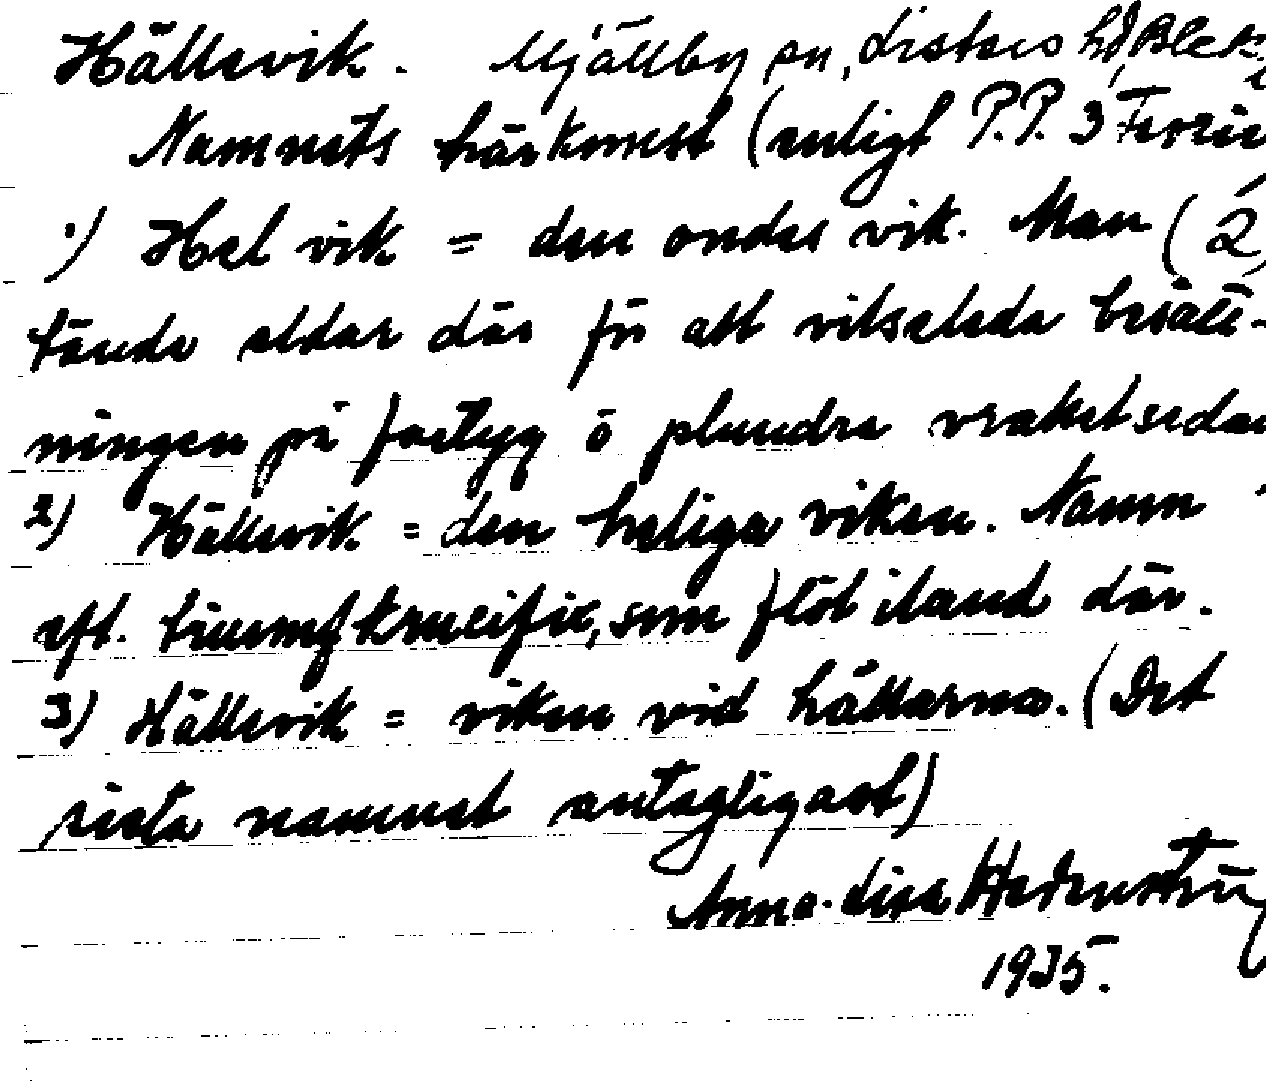 Hällevik. Mjällby sn, Listers hd, Blek.
Namnets härkomst (enligt P.P. 3
1) Hel vik = den ondes vik. Man (
tände eldar där för att vilseleda besätt-
ningen på fartyg o plundra vraket sedan
2) Hällevik = den heliga viken. Namn
eft. triumfkrucifix, som flöt iland där.
3) Hällevik = viken vid hällarna. (Det
sista namnet antagligast)
Anna-Lisa
1935.